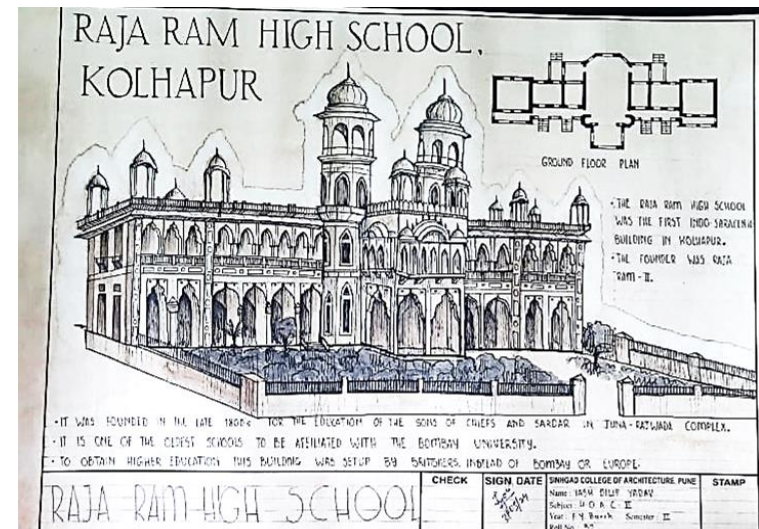 RAJA RAM HIGH SCHOOL,
KOLHAPUR
GROUND FLOOR PLAN
• THE RAJA RAM HIGH SCHOOL
WAS THE FIRST INDO-SARACENIC
BUILDING IN KOLHAPUR.
• THE FOUNDER WAS RAJA
RAM - II.
• IT WAS FOUNDED IN THE LATE 1800s FOR THE EDUCATION OF THE SONS OF CHIEFS AND SARDAR IN JUNA-RAJWADA COMPLEX.
• IT IS ONE OF THE OLDEST SCHOOLS TO BE AFFILIATED WITH THE BOMBAY UNIVERSITY.
• TO OBTAIN HIGHER EDUCATION THIS BUILDING WAS SETUP BY BRITISHERS, INSTEAD OF BOMBAY OR EUROPE.
RAJA RAM HIGH SCHOOL
CHECK
SIGN, DATE
SINHGAD COLLEGE OF ARCHITECTURE, PUNE
Name: YASH DILIP YADAV
Subject: H.O.A.C - II
Year: F.Y. B.arch Semester: II
Roll No.
STAMP